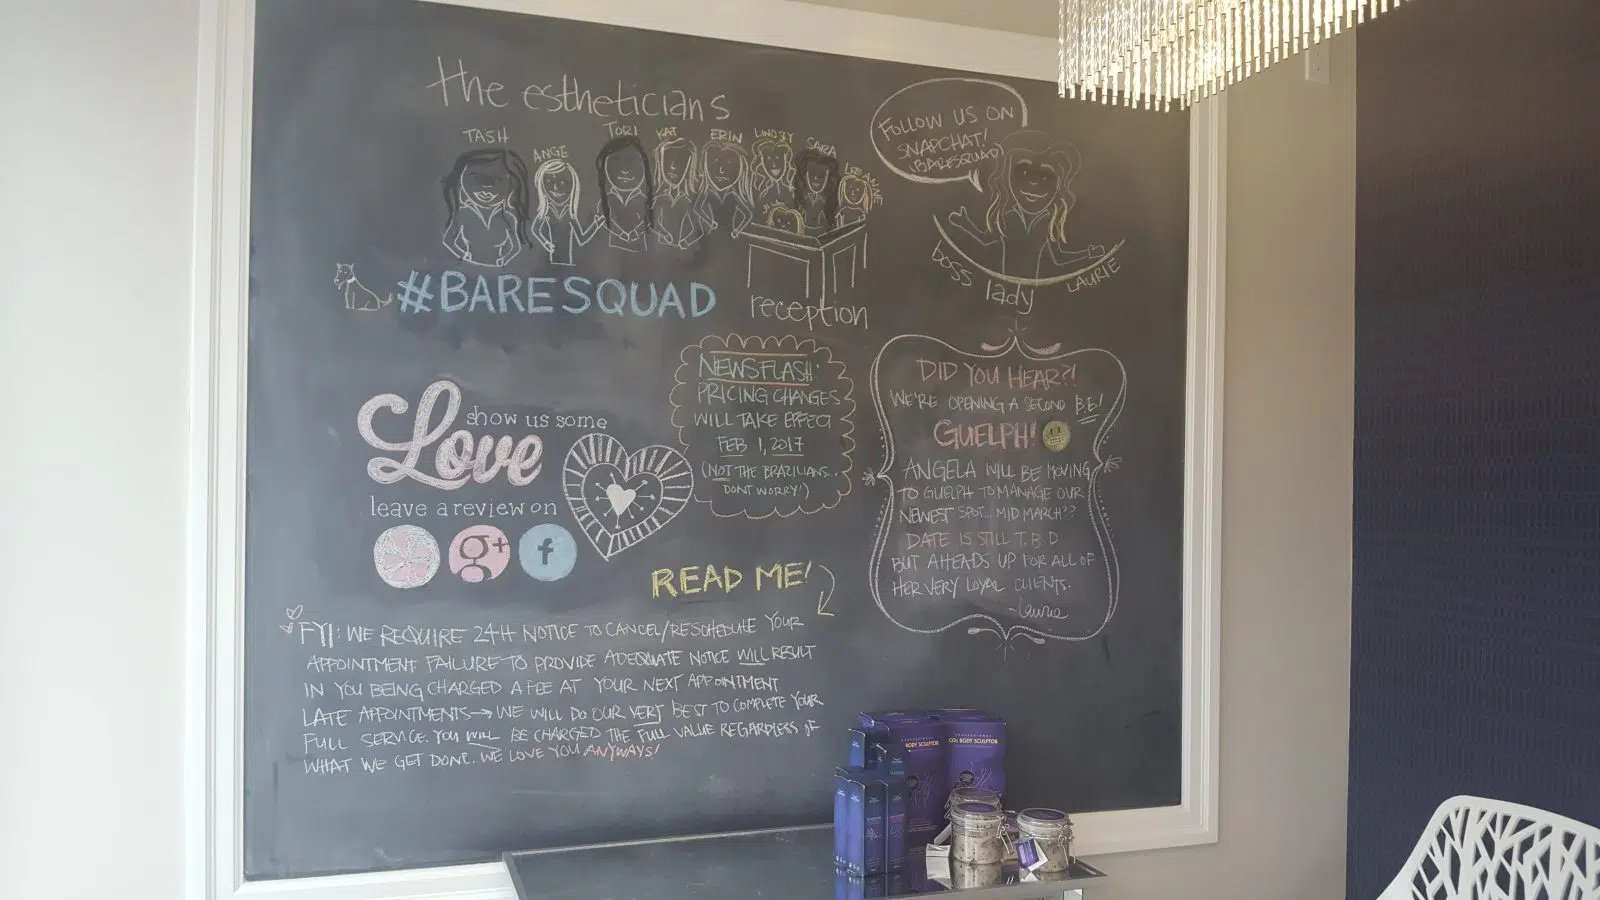 the estheticians
TASH
ANGE
TORI
KAT
ERIN
LINDSEY
SARA
LEEANNE
FOLLOW US ON
SNAPCHAT!
(BARESQUAD)
BOSS lady
LAURIE
#BARESQUAD
reception
NEWSFLASH:
PRICING CHANGES
WILL TAKE EFFECT
FEB 1, 2017
(NOT THE BRAZILIANS...
DONT WORRY!)
DID YOU HEAR?!
WE'RE OPENING A SECOND B.E!
GUELPH!
ANGELA WILL BE MOVING
TO GUELPH TO MANAGE OUR
NEWEST SPOT... MID MARCH??
DATE IS STILL T.B.D
BUT A HEADS UP FOR ALL OF
HER VERY LOYAL CLIENTS.
-Laurie
show us some
Love
leave a review on
g+
f
READ ME!
FYI: WE REQUIRE 24H NOTICE TO CANCEL/RESCHEDULE YOUR
APPOINTMENT FAILURE TO PROVIDE ADEQUATE NOTICE WILL RESULT
IN YOU BEING CHARGED A FEE AT YOUR NEXT APPOINTMENT
LATE APPOINTMENTS→ WE WILL DO OUR VERY BEST TO COMPLETE YOUR
FULL SERVICE. YOU WILL BE CHARGED THE FULL VALUE REGARDLESS OF
WHAT WE GET DONE. WE LOVE YOU ANYWAYS!
PROFESSIONAL
BODY SCULPTOR
PROFESSIONAL
CO2 BODY SCULPTOR